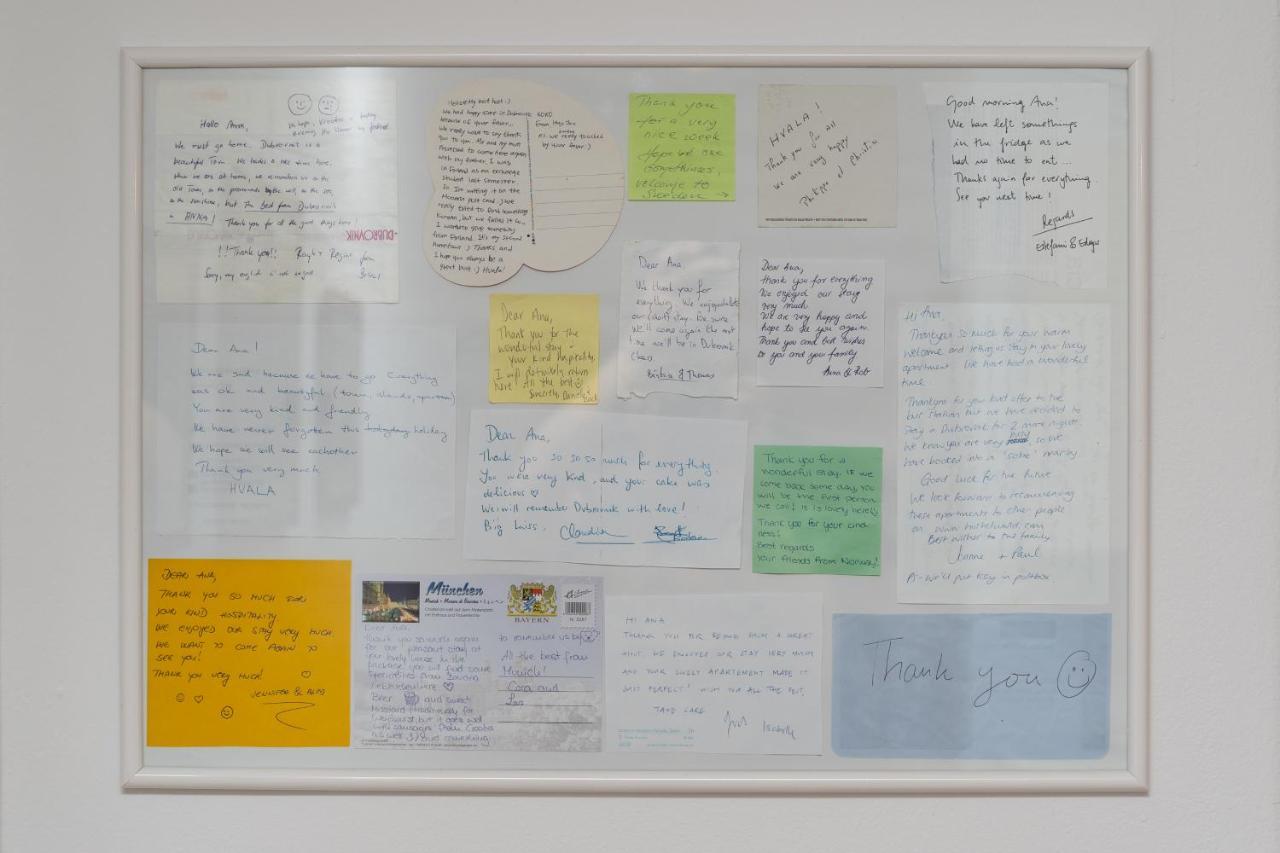 Hallo Anna,
We must go home. Dubrovnik is a
beautiful Town. We had a nice time here.
when we are at home, we remember us on the
old Town, on the promenade the wall, on the sea,
on the sunshine, but the best from Dubrovnik
is ANNA! Thank you for all the good things here!
DUBROVNIK
!!Thank you!!
Sorry, my english is not so good
best host :)
We had happy time in Dubrovnik
because of your favor...
We really want to say thank
you to you. Me and my mum
promised to come here again
with my father. I was
in Finland as an exchange
student last semester.
So I'm writing it on the
Moomin post card, we
really tried to find something
Korean, but we failed it so..
I wanted to give something
from Finland. It's my second
hometown :) Thanks and
I hope you always be a
great host :) Hvala!
XOXO
We were really touched
by your favor :)
Thank you
for a very
nice week
Hope we see
sometimes,
welcome to
Sweden →
HVALA!
Thank you for all
we are very happy
Philippe & Christine
Good morning Ana!
We have left somethings
in the fridge as we
had no time to eat...
Thanks again for everything.
See you next time!
Regards
Dear Ana,
Thank you for the
wonderful stay &
your kind hospitality.
I will definitely return
here! All the best
Sincerely,
Dear Ana
We thank you for
everything. We enjoyed
our (short) stay. Be sure
We'll come again the next
time we'll be in Dubrovnik
Cheers,
Barbara & Thomas
Dear Ana,
Thank you for everything
We enjoyed our stay
very much
We are very happy and
hope to see you again.
Thank you and best wishes
to you and your family
Anna & Rob
Dear Ana!
We are sad because we have to go. Everything
was ok and beautyful (town, islands, apartman)
You are very kind and friendly
We have never forgotten this holiday
We hope we will see eachother
Thank you very much
HVALA
Dear Ana,
Thank you so so so much for everything.
You were very kind, and your cake was
delicious ♡
We will remember Dubrovnik with love!
Big kiss, Claudia
Thank you for a
wonderful stay. If we
come back some day, you
will be the first person
we call! It is lovely here!
Thank you for your kind
ness!
Best regards
your friends from Norway!
Hi Ana,
Thankyou so much for your warm
welcome and letting us stay in your lovely
apartment. We have had a wonderful
time.
Thankyou for your kind offer to the
bus station but we have decided to
stay in Dubrovnik for 2 more nights.
We know you are very busy, so we
have booked into a 'sobe' nearby
Good luck for the future
We look forward to recommending
these apartments to other people
on www.hostelworld.com
Best wishes to the family
Joanne + Paul
PS - We'll put key in postbox
DEAR ANA,
THANK YOU SO MUCH FOR
YOUR KIND HOSPITALITY
WE ENJOYED OUR STAY VERY MUCH.
WE WANT TO COME AGAIN TO
SEE YOU!
THANK YOU VERY MUCH!
JENNIFER &
München
BAYERN
Dear Ana,
Thank you so much again
for our pleasant stay at
your lovely house. In the
package you will find some
specialties from Bavaria
Lebkuchenherz ♡
Beer and sweet
mustard (traditionally for
Weißwurst but it goes well
with sausages from Croatia
as well :)) and something
to remember us by
All the best from
Munich!
Cora and
HI ANA
THANK YOU FOR BEING SUCH A GREAT
HOST. WE ENJOYED OUR STAY VERY MUCH
AND YOUR SWEET APARTEMENT MADE IT
JUST PERFECT! WISH YOU ALL THE BEST,
TAKE CARE
Isabelle
Thank you